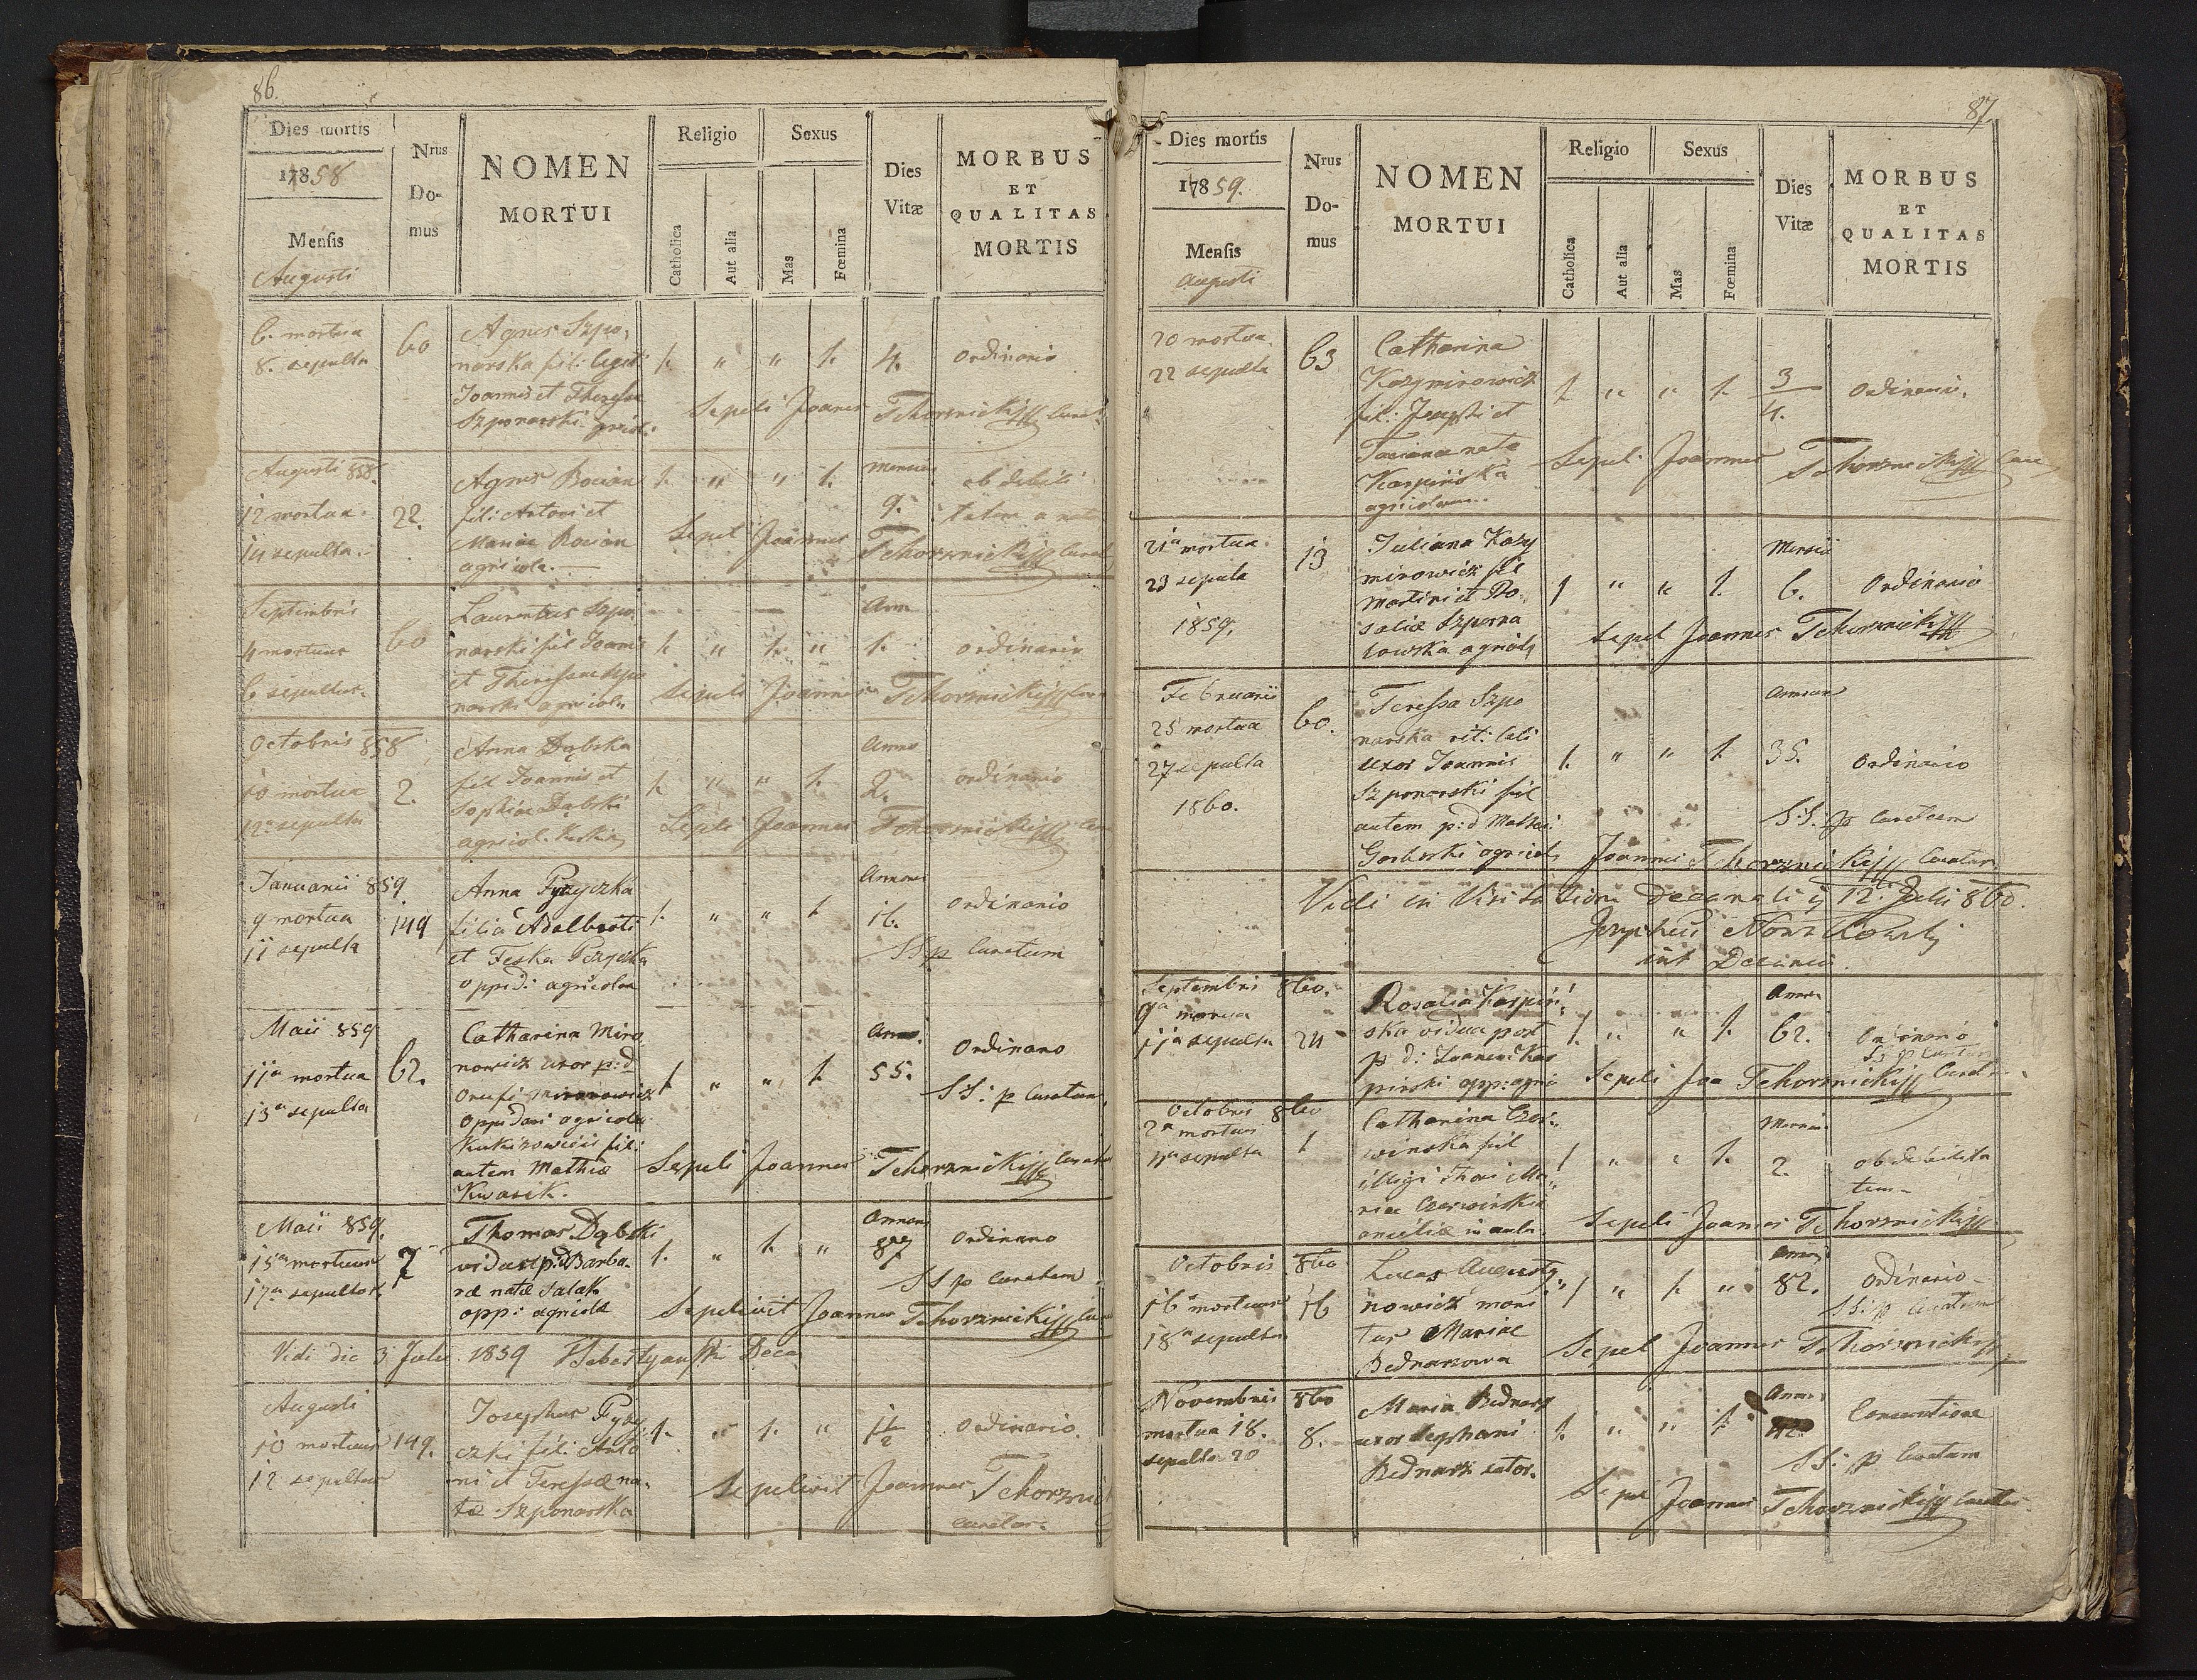 86.
Dies mortis
Nrus Domus
NOMEN MORTUI
Religio
Sexus
Dies Vitæ
MORBUS ET QUALITAS MORTIS
17858
Mensis
Augusti
Catholica
Aut alia
Mas
Fœmina
6. mortua
8. sepulta
60
Agnes Szpo,
narska fil: legit:
Joannis et Theresa
Szponarski
1. " " 1. 4. ordinario
Sepeli Joannes Tchorznicki Curat
Augusti 858.
12 mortua.
14 sepulta.
22.
Agnes Bocian
fil: Antoni et
Mariae Bocian
agricola.
1. " " 1. Mensium 9. ob debili
tatem a
Sepel Joannes Tchorznicki Curat
Septembris
4 mortuus
6 sepultus
60
Laurentius Szpo
narski fil Joanis
et Theresiae Szpo
narski agricola
1. " 1. " Ann 1. ordinaria
Sepeli Joannes Tchorznicki Cur
Octobris 858
10 mortua
12 sepulta
2.
Anna Dąbska
fil Joannis et
Sophiae Dąbski
agricol.
1. " " 1. Anno 2. ordinario
Sepeli Joannes Tchorznicki
Januarii 859
9 mortua
11 sepulta
149
Anna Pyzyczka
filia Adalberti
et Teska
oppid: agricola
1. " " 1. Annor 16. ordinario
SS p Curatum
Maii 859
11a mortua
13a sepulta
62.
Catharina Miro
nowicz uxor p:d
Onufri Mironowicz
oppidani agricola
fil:
autem Mathiæ
Kwasik.
1. " " 1. Anno. 55. Ordinario
SS: p Curatum
Sepeli Joannes Tchorznicki Curat
Maii 859.
15a mortuus
17a sepultus
7
Thomas Dąbski
viduus p:d Barba.
ræ natæ Salak
opp: agricola
1. " 1. " Annor 87 ordinario
SS p Curatum
Sepelivit Joannes Tchorznicki Cur
Vidi die 3 Julii 1859 Sebestyański Deca
Augusti
10 mortuus
12 sepultus
149.
Josephus Pyzy
czki fil: Anto
ni et Teressæ na.
tæ Szponarska
1. " 1. " 1½ Ordinario.
Sepelivit Joannes Tchorznic
Curator.
87
Dies mortis
Nrus Domus
NOMEN MORTUI
Religio
Sexus
Dies Vitæ
MORBUS ET QUALITAS MORTIS
17859.
Mensis
Augusti
Catholica
Aut alia
Mas
Fœmina
20 mortua
22 sepulta
63
Catharina
Kazymirowicz
fil: et
nata
Karpińska
agricolarum.
1. " " 1. 3/4. Ordinario.
Sepeli Joannes Tchorznicki Cur
21a mortua
23 sepulta
1859.
13
Juliana Kazy
mirowicz fil
Martini et Ro
saliæ Szporna
lowska agricol
1 " " 1. Mensiu 6. Ordinario
Sepel Joannes Tchorznicki
Februarii
25 mortua
27 sepulta
1860.
60.
Teressa Szpo
narska rit: lati
uxor Joannis
Szponarski fil
autem p:d Mathei
Gorherski agricol
1. " " 1. Annorum 35. Ordinario
SS. p Curatum
Joannes Tchorznicki Curator
Vidi in Visitatione Decanali 12. Julii 860.
Josephus Nowakowski
Decanus.
Septembris 860.
9a mortua
11a sepulta
24
Rosalia Karpiń
ska vidua post
p:d: Joannem Kar
pinski opp: agric
1. " " 1. Annor 62. Ordinario
SS p Curatum
Sepeli Joa Tchorznicki Curat
Octobris 860
2a mortua
4a sepulta
1
Catharina Czer.
winska fil
illigi Thori Ma
riæ Czerwinska
ancillæ in aula
1 " " 1. Mensiu 2. ob debilita
tem
Sepeli Joannes Tchorznicki
Octobris 860
16a mortuus
18a sepultus
16
Lucas Augusty
nowicz mari
tus Mariae
Bednarzowa
1 " 1. " Annor 82. Ordinario
SS: p Curatum
Sepel Joannes Tchorznicki
Novembris 860
mortua 18.
sepulta 20
8.
Maria Bednarz
uxor Stephani
Bednarz sator.
1. " " 1. Annor Consumtione
SS: p Curatum
Sepel Joannes Tchorznicki Curator